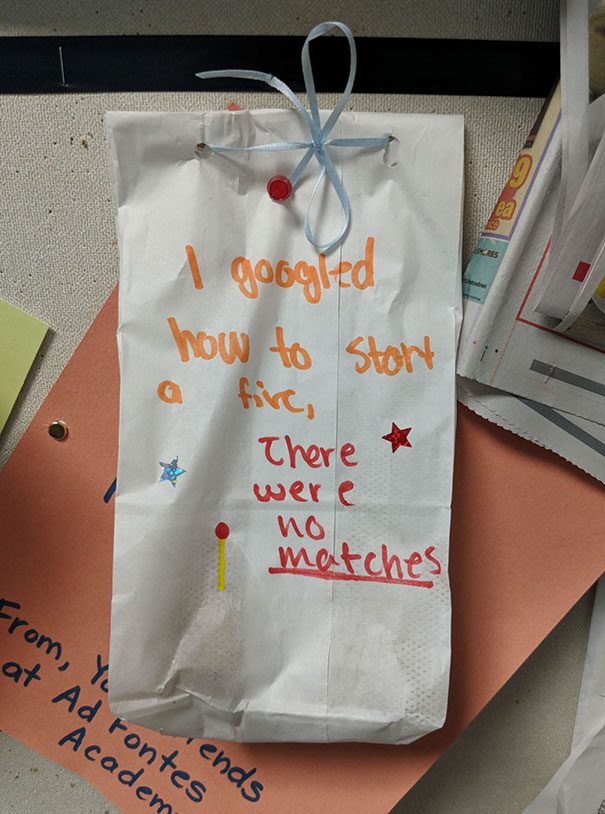 I googled
how to start
a fire,
There
were
no
matches
From, Yo
at Ad Fontes
Academ
ends
9
ea